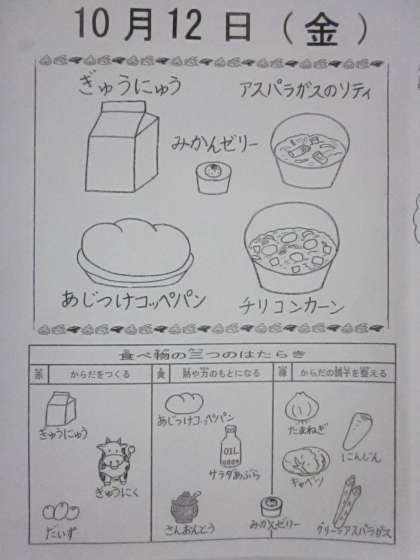 10月12日(金)
ぎゅうにゅう
アスパラガスのソティ
みかんゼリー
あじつけコッペパン
チリコンカーン
食べ物の三つのはたらき
からだをつくる
熱や力のもとになる
からだの調子を整える
ぎゅうにゅう
ぎゅうにく
だいず
あじつけコッペパン
OIL
サラダあぶら
さんおんとう
みかんゼリー
たまねぎ
にんじん
キャベツ
グリーンアスパラガス